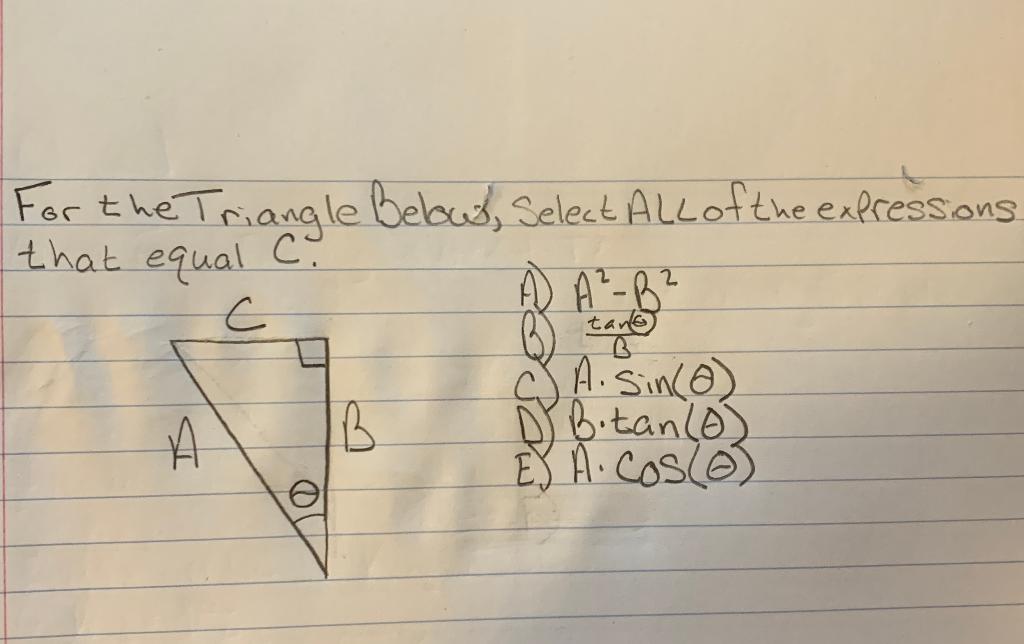 For the Triangle Below, Select ALL of the expressions
that equal C.
C
A
B
θ
A) A²-B²
B) tan(θ)/B
C) A·sin(θ)
D) B·tan(θ)
E) A·cos(θ)